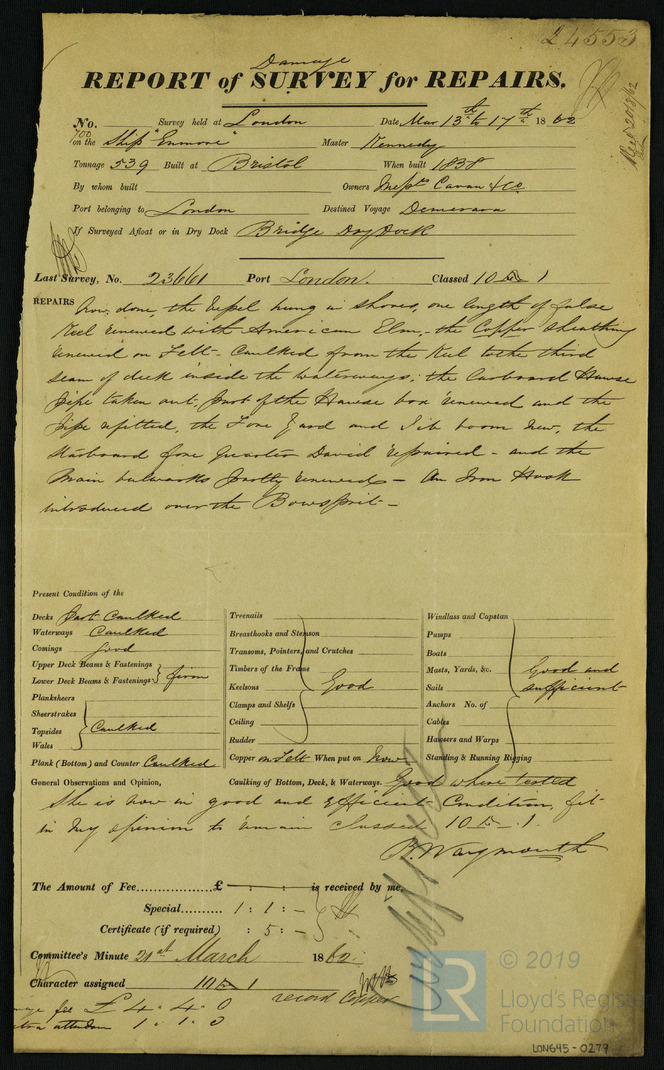 24553
Damage
REPORT of SURVEY for REPAIRS.
No. 700 Survey held at London Date Mar 13th to 17th 1862
on the Ship "Enmore" Master Kennedy
Tonnage 539 Built at Bristol When built 1838
By whom built Owners Messrs Cavan & Co
Port belonging to London Destined Voyage Demerara
If Surveyed Afloat or in Dry Dock Bridge Dry Dock
Last Survey, No. 23661 Port London. Classed 10 1
REPAIRS now done, the Vessel hung in shores, one length of false
Keel renewed with American Elm,- the Copper Sheathing
renewed on Felt - Caulked from the Keel to the third
seam of deck inside the waterways; the Larboard Hawse
Pipe taken out, part of the Hawse box renewed and the
Pipe refitted, the Fore Yard and Jib boom new, the
Starboard fore Quarter David repaired - and the
Main bulwarks partly renewed - An Iron Hook
introduced over the Bowsprit -
Present Condition of the
Decks Part Caulked
Waterways Caulked
Comings Good
Upper Deck Beams & Fastenings
Lower Deck Beams & Fastenings firm
Planksheers
Sheerstrakes
Topsides Caulked
Wales
Plank (Bottom) and Counter Caulked
Treenails
Breasthooks and Stemson
Transoms, Pointers, and Crutches
Timbers of the Frame
Keelsons Good
Clamps and Shelfs
Ceiling
Rudder
Copper on Felt When put on Now
Windlass and Capstan
Pumps
Boats
Masts, Yards, &c. Good and
Sails sufficient
Anchors No. of
Cables
Hawsers and Warps
Standing & Running Rigging
General Observations and Opinion, Caulking of Bottom, Deck, & Waterways. Good where tested
She is now in good and efficient Condition, fit
in my opinion to remain Classed 10 1
B. Waymouth
The Amount of Fee............... £ - : - : - is received by me,
Special......... 1 : 1 : -
Certificate (if required) : 5 : -
Committee's Minute 21st March 1862
Character assigned 10 1
record Copper
fee £4.4.0
attendan 1.1.0
© 2019
LR
Lloyd's Register
Foundation
LON645-0279